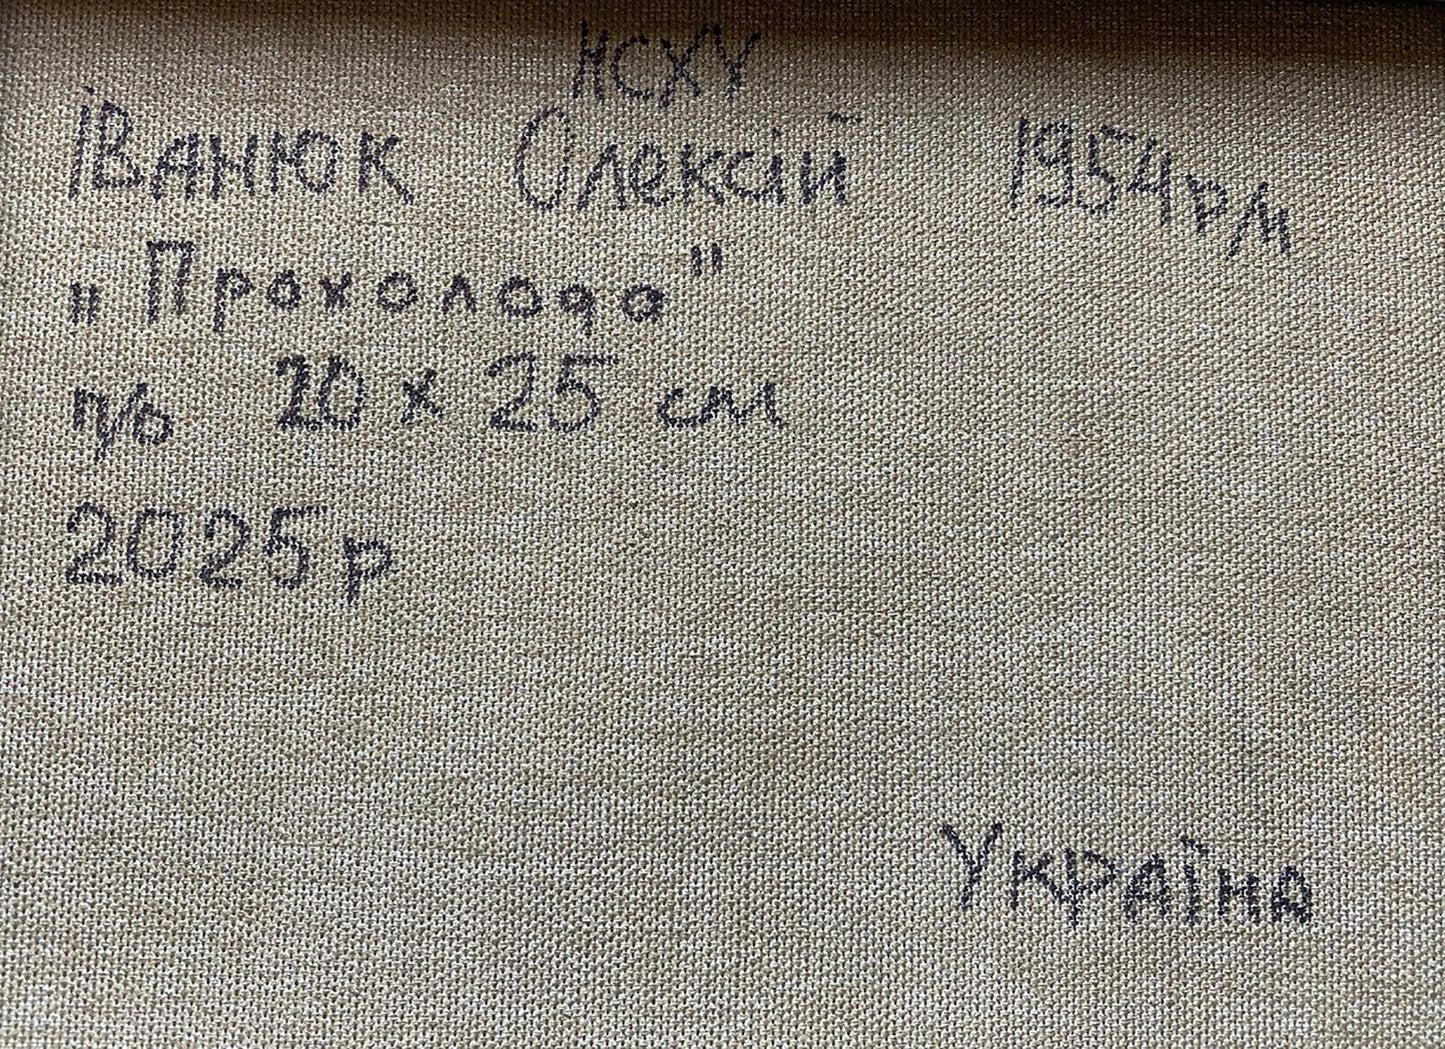 НСХУ
ІВАНЮК Олексій 1954 р/н
„Прохолода"
п/о 20 х 25 см
2025р
Україна